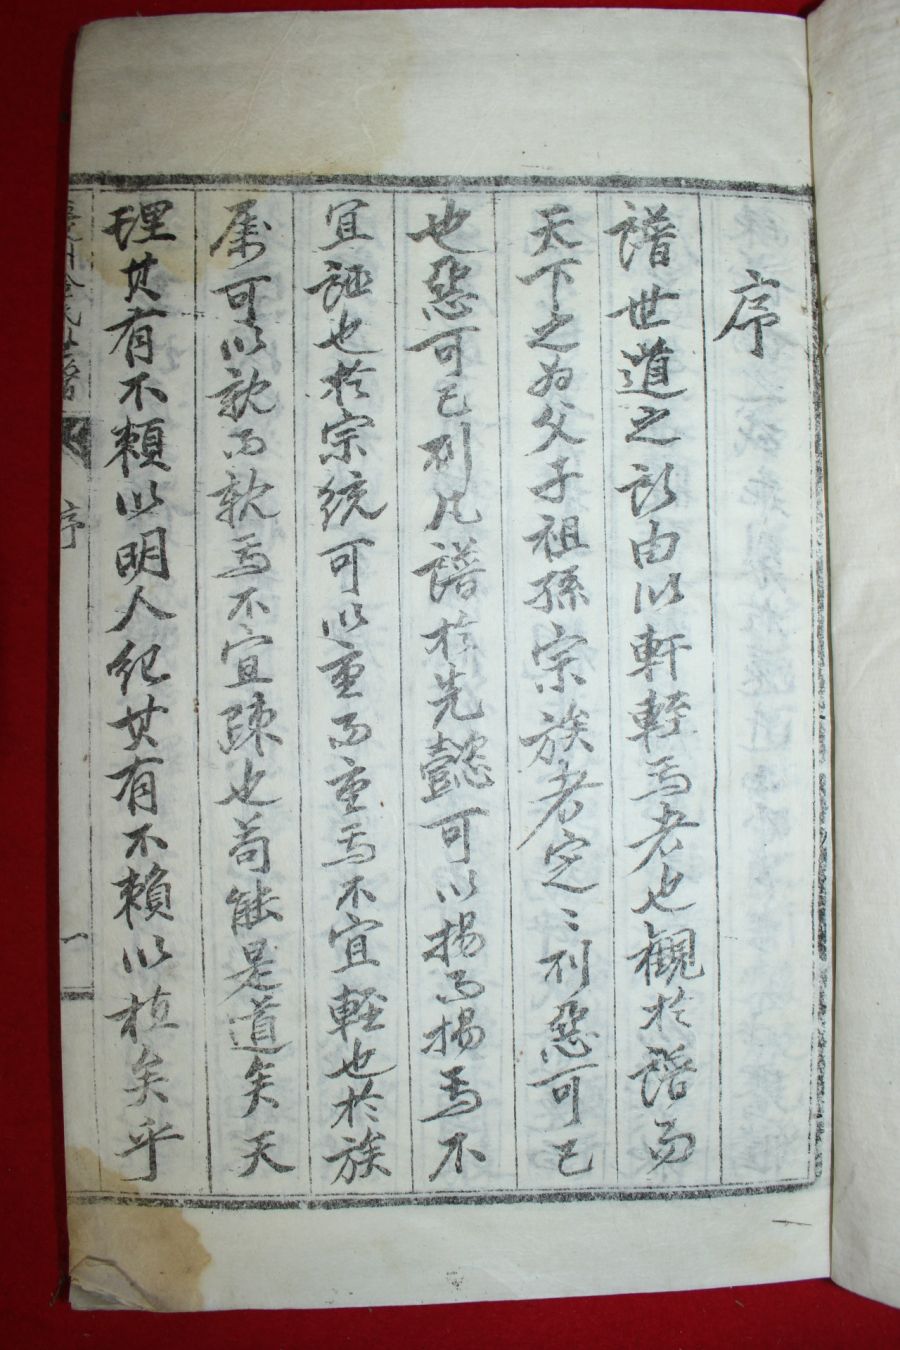 序
譜世道之所由以軒輊焉者也觀於譜而
天下之為父子祖孫宗族者定〻則惡可已
也惡可已則凡譜於先懿可以揚而揚焉不
宜誣也於宗統可以重而重焉不宜輕也於族
屬可以親而親焉不宜疎也苟能是道矣天
理其有不賴以明人紀其有不賴以植矣乎
氏世譜
序
一